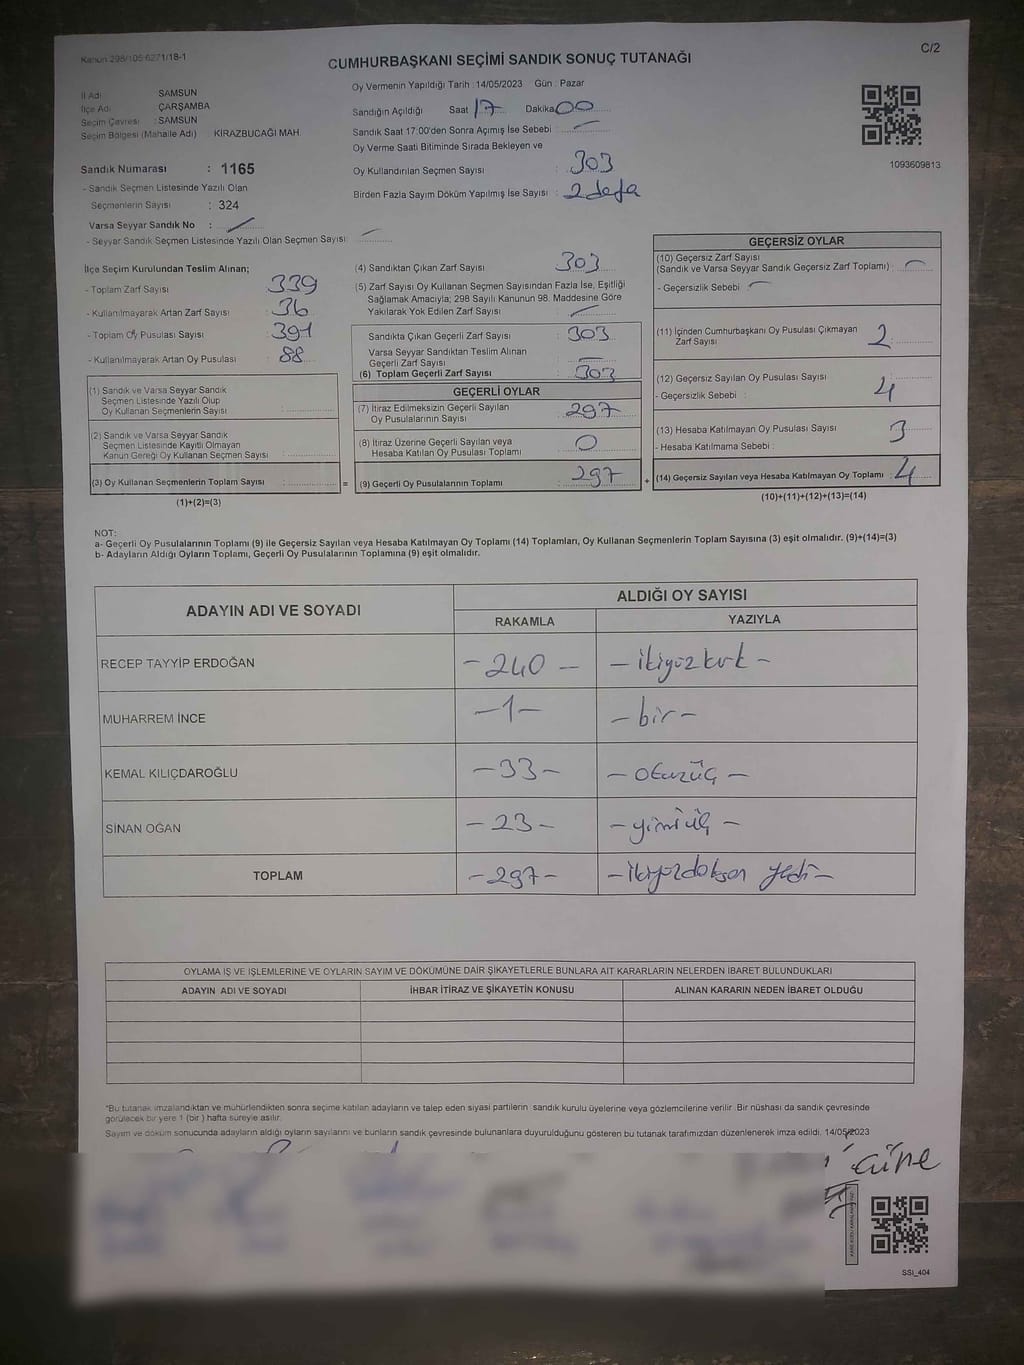 Kanun 298/105 6271/18-1
C/2
CUMHURBAŞKANI SEÇİMİ SANDIK SONUÇ TUTANAĞI
İl Adı : SAMSUN
İlçe Adı : ÇARŞAMBA
Seçim Çevresi : SAMSUN
Seçim Bölgesi (Mahalle Adı) : KİRAZBUCAĞI MAH.
Oy Vermenin Yapıldığı Tarih : 14/05/2023 Gün : Pazar
Sandığın Açıldığı Saat 17 Dakika 00
Sandık Saat 17:00'den Sonra Açılmış İse Sebebi : —
Oy Verme Saati Bitiminde Sırada Bekleyen ve
Oy Kullandırılan Seçmen Sayısı : 303
Birden Fazla Sayım Döküm Yapılmış İse Sayısı : 2 defa
1093609813
Sandık Numarası : 1165
- Sandık Seçmen Listesinde Yazılı Olan
Seçmenlerin Sayısı : 324
Varsa Seyyar Sandık No : —
- Seyyar Sandık Seçmen Listesinde Yazılı Olan Seçmen Sayısı: —
İlçe Seçim Kurulundan Teslim Alınan;
- Toplam Zarf Sayısı : 339
- Kullanılmayarak Artan Zarf Sayısı : 36
- Toplam Oy Pusulası Sayısı : 391
- Kullanılmayarak Artan Oy Pusulası : 88
(1) Sandık ve Varsa Seyyar Sandık
Seçmen Listesinde Yazılı Olup
Oy Kullanan Seçmenlerin Sayısı :
(2) Sandık ve Varsa Seyyar Sandık
Seçmen Listesinde Kayıtlı Olmayan
Kanun Gereği Oy Kullanan Seçmen Sayısı :
(3) Oy Kullanan Seçmenlerin Toplam Sayısı : =
(1)+(2)=(3)
(4) Sandıktan Çıkan Zarf Sayısı : 303
(5) Zarf Sayısı Oy Kullanan Seçmen Sayısından Fazla İse, Eşitliği
Sağlamak Amacıyla; 298 Sayılı Kanunun 98. Maddesine Göre
Yakılarak Yok Edilen Zarf Sayısı : —
Sandıkta Çıkan Geçerli Zarf Sayısı : 303
Varsa Seyyar Sandıktan Teslim Alınan
Geçerli Zarf Sayısı : —
(6) Toplam Geçerli Zarf Sayısı : 303
GEÇERLİ OYLAR
(7) İtiraz Edilmeksizin Geçerli Sayılan
Oy Pusulalarının Sayısı : 297
(8) İtiraz Üzerine Geçerli Sayılan veya
Hesaba Katılan Oy Pusulası Toplamı : 0
(9) Geçerli Oy Pusulalarının Toplamı : 297 +
GEÇERSİZ OYLAR
(10) Geçersiz Zarf Sayısı
(Sandık ve Varsa Seyyar Sandık Geçersiz Zarf Toplamı) : —
- Geçersizlik Sebebi : —
(11) İçinden Cumhurbaşkanı Oy Pusulası Çıkmayan
Zarf Sayısı : 2
(12) Geçersiz Sayılan Oy Pusulası Sayısı : 4
- Geçersizlik Sebebi :
(13) Hesaba Katılmayan Oy Pusulası Sayısı : 3
- Hesaba Katılmama Sebebi :
(14) Geçersiz Sayılan veya Hesaba Katılmayan Oy Toplamı : 4
(10)+(11)+(12)+(13)=(14)
NOT:
a- Geçerli Oy Pusulalarının Toplamı (9) ile Geçersiz Sayılan veya Hesaba Katılmayan Oy Toplamı (14) Toplamları, Oy Kullanan Seçmenlerin Toplam Sayısına (3) eşit olmalıdır. (9)+(14)=(3)
b- Adayların Aldığı Oyların Toplamı, Geçerli Oy Pusulalarının Toplamına (9) eşit olmalıdır.
ADAYIN ADI VE SOYADI
ALDIĞI OY SAYISI
RAKAMLA YAZIYLA
RECEP TAYYİP ERDOĞAN -240- -ikiyüzkırk-
MUHARREM İNCE -1- -bir-
KEMAL KILIÇDAROĞLU -33- -otuzüç-
SİNAN OĞAN -23- -yirmiüç-
TOPLAM -297- -ikiyüzdoksan yedi-
OYLAMA İŞ VE İŞLEMLERİNE VE OYLARIN SAYIM VE DÖKÜMÜNE DAİR ŞİKAYETLERLE BUNLARA AİT KARARLARIN NELERDEN İBARET BULUNDUKLARI
ADAYIN ADI VE SOYADI İHBAR İTİRAZ VE ŞİKAYETİN KONUSU ALINAN KARARIN NEDEN İBARET OLDUĞU
*Bu tutanak imzalandıktan ve mühürlendikten sonra seçime katılan adayların ve talep eden siyasi partilerin sandık kurulu üyelerine veya gözlemcilerine verilir. Bir nüshası da sandık çevresinde
görülecek bir yere 1 (bir ) hafta süreyle asılır.
Sayım ve döküm sonucunda adayların aldığı oyların sayılarını ve bunların sandık çevresinde bulunanlara duyurulduğunu gösteren bu tutanak tarafımızdan düzenlenerek imza edildi. 14/05/2023
SSI_404